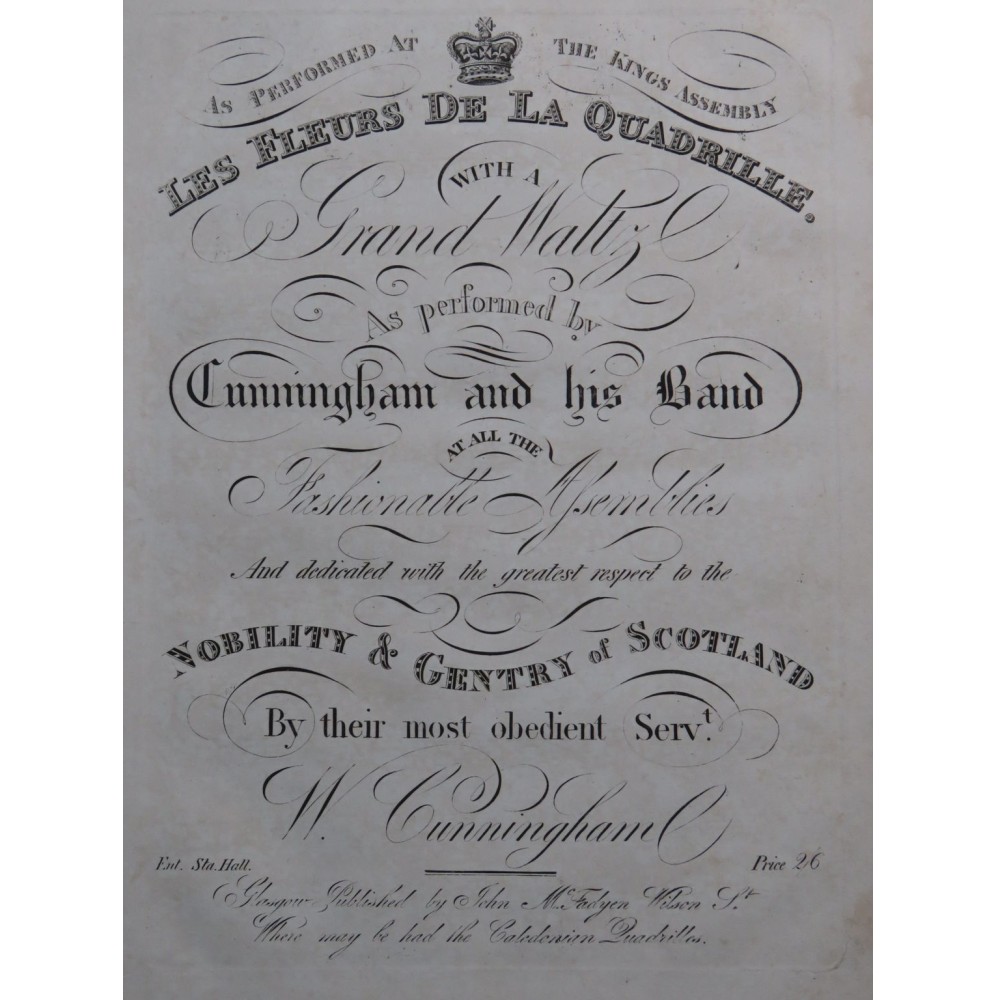 As Performed At The Kings Assembly
Les Fleurs De La Quadrille.
WITH A
Grand Waltz
As performed by
Cunningham and his Band
AT ALL THE
Fashionable Assemblies
And dedicated with the greatest respect to the
Nobility & Gentry of Scotland
By their most obedient Serv.t
W. Cunningham
Ent. Sta. Hall. Price 2/6
Glasgow Published by John McFadyen Wilson St.
Where may be had the Caledonian Quadrilles.